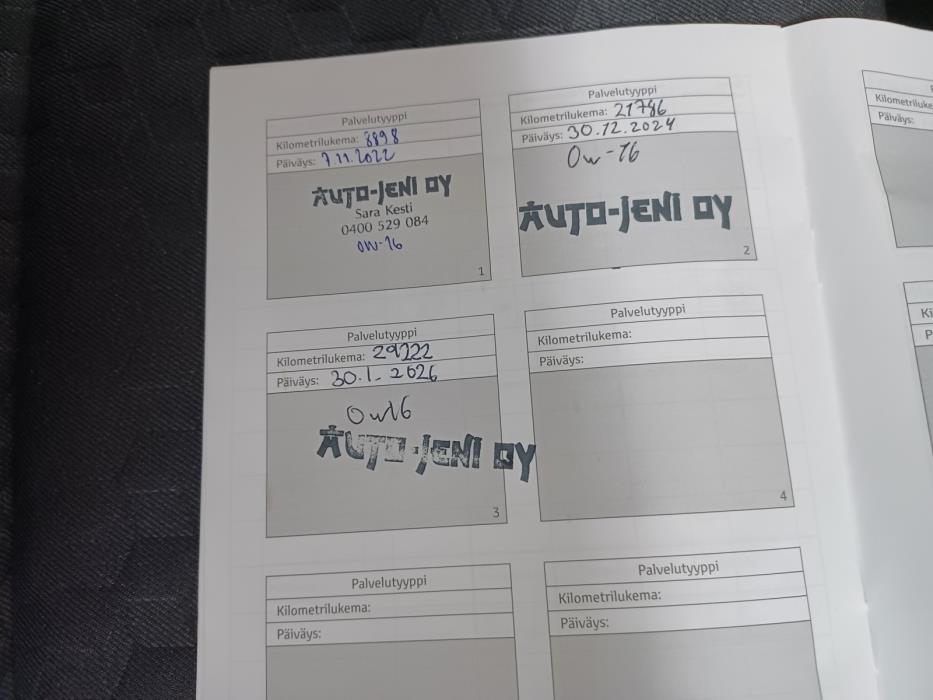 Palvelutyyppi
Kilometrilukema: 8898
Päiväys: 7.11.2022
AUTO-JENI OY
Sara Kesti
0400 529 084
OW-16
1
Palvelutyyppi
Kilometrilukema: 21786
Päiväys: 30.12.2024
Ow-16
AUTO-JENI OY
2
Palvelutyyppi
Kilometrilukema: 29222
Päiväys: 30.1.2026
Ow16
AUTO-JENI OY
3
Palvelutyyppi
Kilometrilukema:
Päiväys:
4
Palvelutyyppi
Kilometrilukema:
Päiväys:
Palvelutyyppi
Kilometrilukema:
Päiväys:
Päiväys: